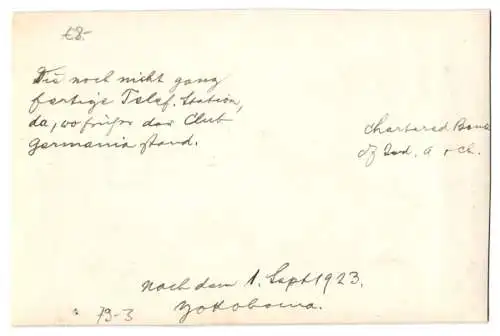 €8.-
Die noch nicht ganz
fertige Telef. Station,
da, wo früher der Club
Germania stand.
Chartered Bank
of Ind. A + Ch.
Nach dem 1. Sept 1923.
Yokohama.
79-3